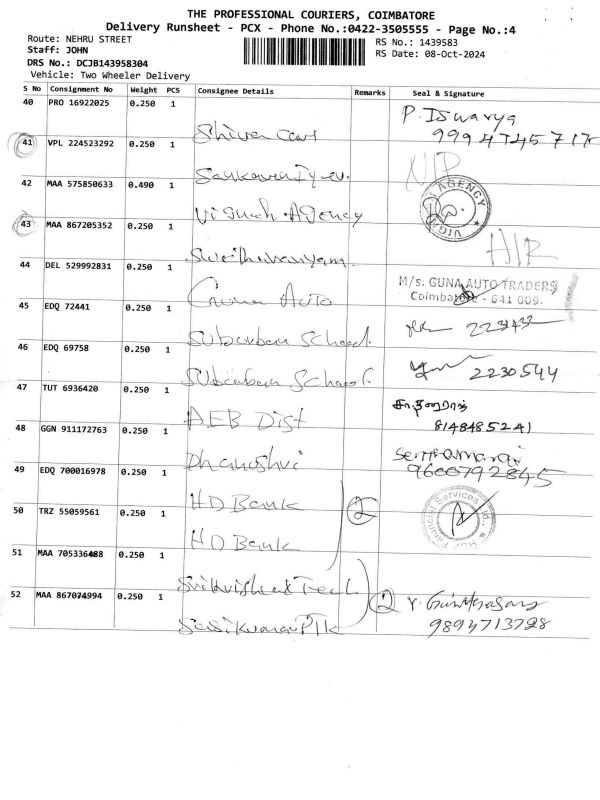 THE PROFESSIONAL COURIERS, COIMBATORE
Delivery Runsheet - PCX - Phone No.:0422-3505555 - Page No.:4
Route: NEHRU STREET
RS No.: 1439583
Staff: JOHN
RS Date: 08-Oct-2024
DRS No.: DCJB143958304
Vehicle: Two Wheeler Delivery
S No Consignment No Weight PCS Consignee Details Remarks Seal & Signature
40 PRO 16922025 0.250 1
Shiva Cars P. Iswarya
41 VPL 224523292 0.250 1
42 MAA 575850633 0.490 1
Vignesh Agency AGENCY
43 MAA 867205352 0.250 1
44 DEL 529992831 0.250 1
Guna Auto M/s. GUNA AUTO TRADERS
Coimbatore - 641 009.
45 EDQ 72441 0.250 1
Suburban School
46 EDQ 69758 0.250 1
Suburban School 2230544
47 TUT 6936420 0.250 1
AEB Dist
8148485241
48 GGN 911172763 0.250 1
9600792845
49 EDQ 700016978 0.250 1
HD Bank 2
50 TRZ 55059561 0.250 1
HD Bank Financial Services
51 MAA 705336488 0.250 1
52 MAA 867074994 0.250 1
2
9894713728